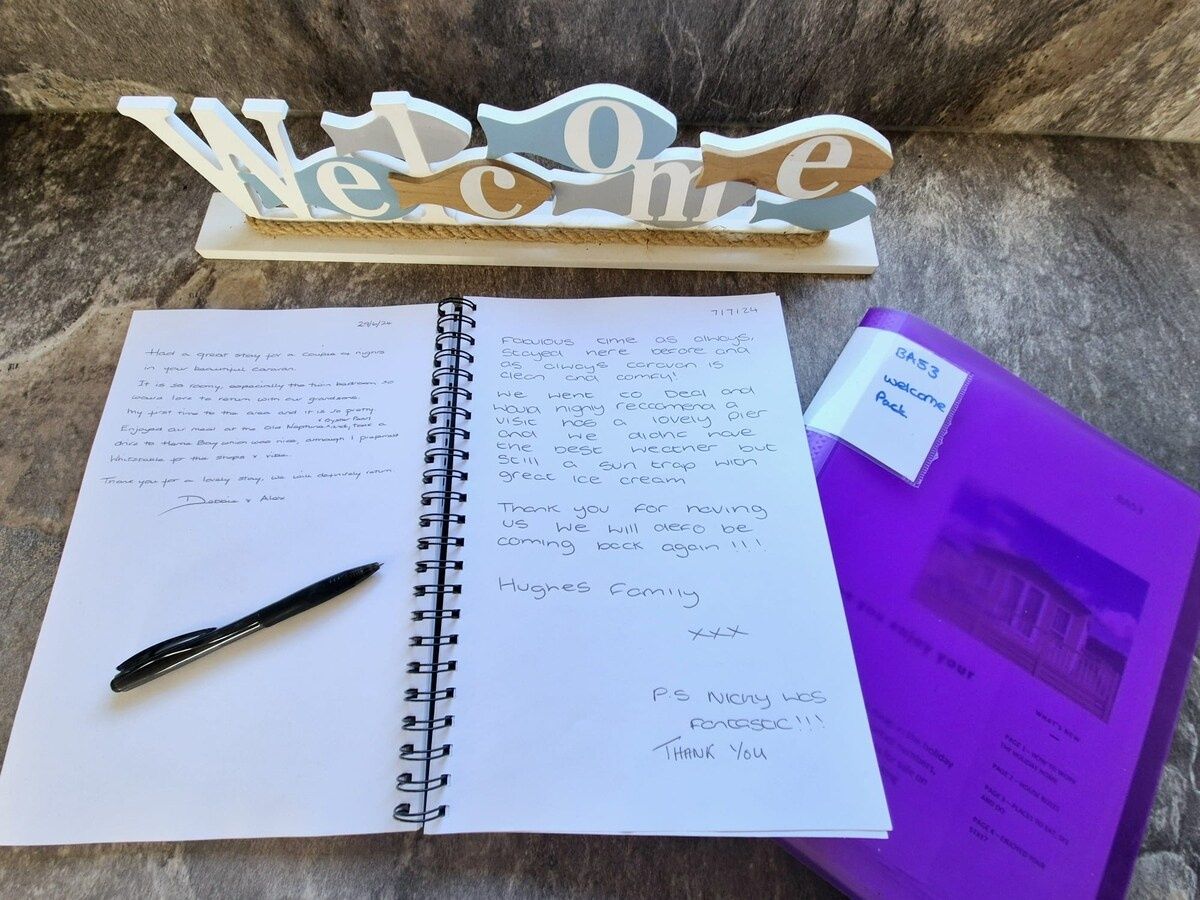 Welcome
29/6/24
Had a great stay for a couple of nights
in your beautiful caravan.
It is so roomy, especially the twin bedroom so
would love to return with our grandsons.
My first time to the area and it is so pretty
Enjoyed our meal at the Old Neptune took a
drive to Herne Bay which was nice, although I preferred
Whitstable for the shops & vibe.
Thank you for a lovely stay, we will definitely return
Debbie & Alex
7/7/24
Fabulous time as always,
Stayed here before and
as always caravan is
clean and comfy!
We went to Deal and
would highly reccomend a
visit has a lovely pier
and we didnt have
the best weather but
Still a sun trap with
great ice cream
Thank you for having
us we will defo be
coming back again !!!
Hughes Family
xxx
P.S Nicky was
fantastic!!!
THANK YOU
BA53
welcome
Pack
BA53
you enjoy your
the holiday
numbers,
WHAT'S NEW
PAGE 1 - HOW TO WORK
THE HOLIDAY HOME
PAGE 2 - HOUSE RULES
PAGE 3 - PLACES TO EAT, SEE
AND DO
PAGE 4 - ENJOYED YOUR
STAY?